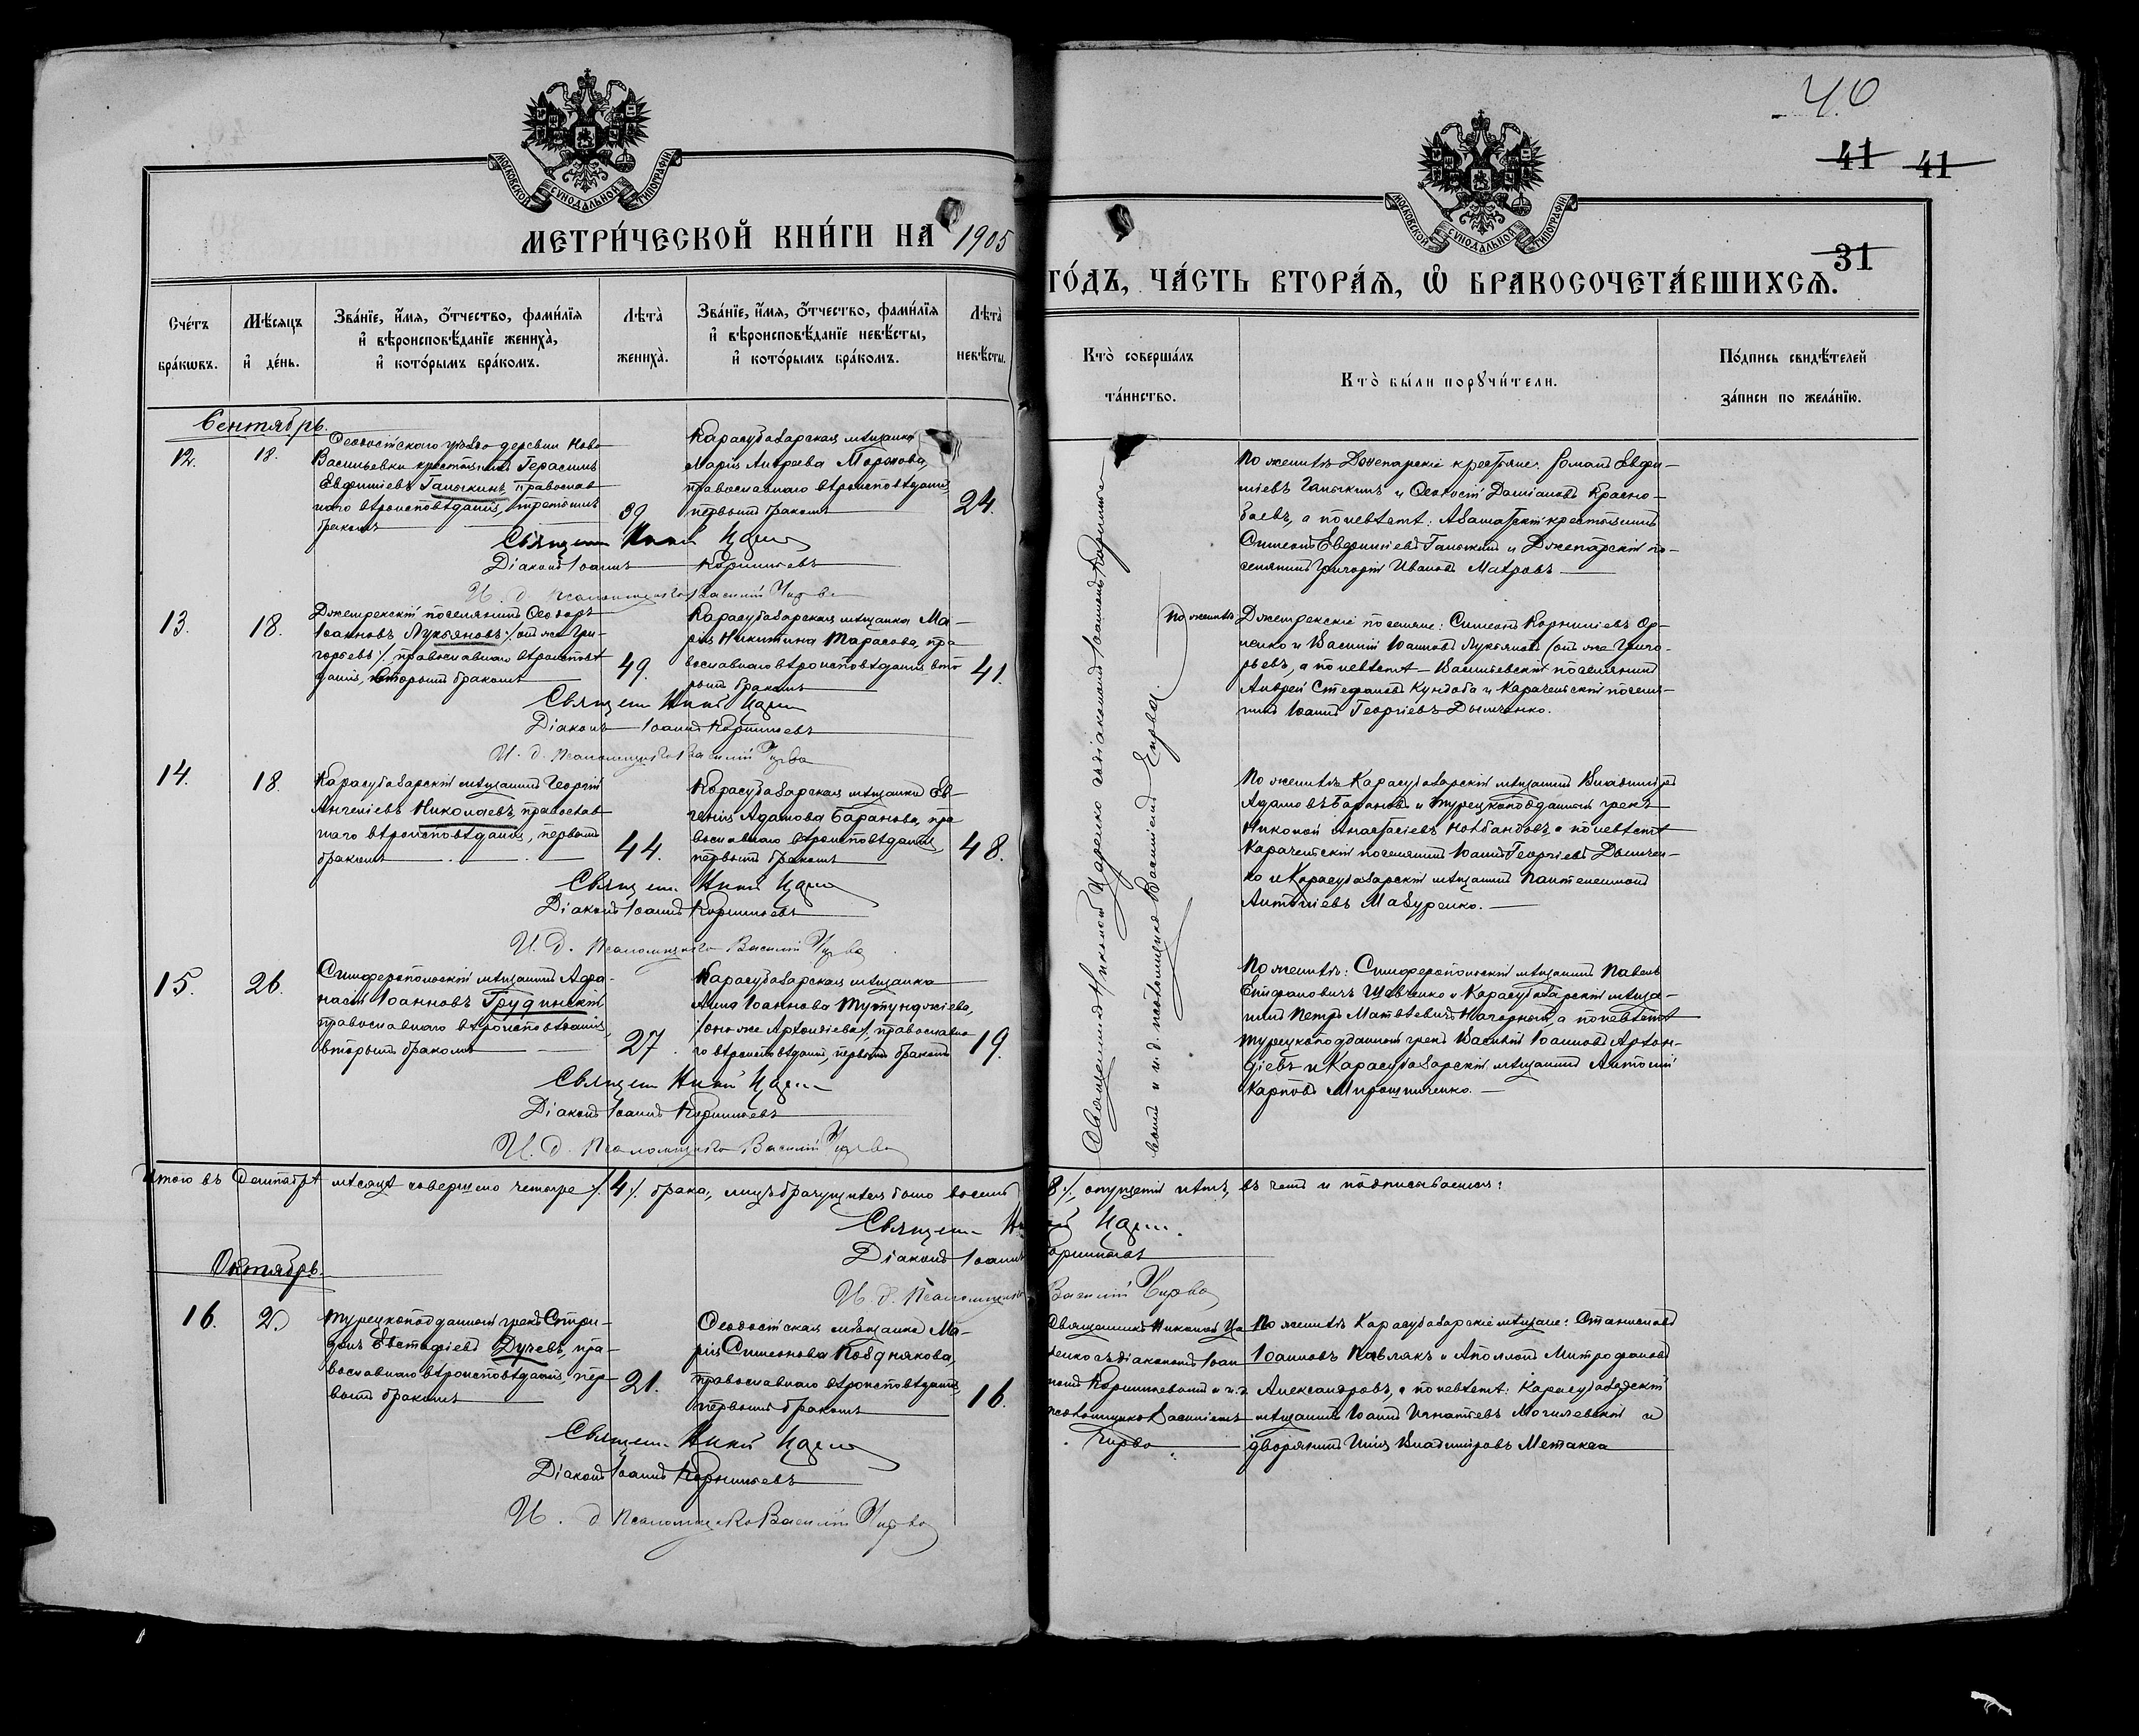 40
41 41
31
МОСКОВСКОЙ СУНОДАЛЬНОЙ ТИПОГРАФІИ
МОСКОВСКОЙ СУНОДАЛЬНОЙ ТИПОГРАФІИ
МЕТРИ́ЧЕСКОЙ КНИ́ГИ НА 1905
ГО́ДЪ, ЧА́СТЬ ВТОРА́Я, Ѡ БРАКОСОЧЕТА́ВШИХСЯ.
Сче́тъ
бра́кѡвъ.
Мѣ́сяцъ
и де́нь.
Зва́нїе, и́мя, ѻ́тчество, фами́лїя
и вѣроисповѣ́данїе жениха̀,
и кото́рымъ бра́комъ.
Лѣта̀
жениха̀.
Зва́нїе, и́мя, ѻ́тчество, фами́лїя
и вѣроисповѣ́данїе невѣ́сты,
и кото́рымъ бра́комъ.
Лѣта̀
невѣ́сты.
Кто̀ соверша́лъ
та́инство.
Кто̀ бы́ли порꙋчи́тели.
По́дпись свидѣ́телей
за́писи по жела́нїю.
Сентябрь.
12.
18.
Ѳеодосійскаго уѣзда деревни Ново
Васильевки крестьянинъ Герасимъ
Евфиміевъ Галыкинъ, православ
наго вѣроисповѣданія, третьимъ
бракомъ
39
Карасубазарская мѣщанка
Марія Андреева Морозова,
православнаго вѣроисповѣданія,
первымъ бракомъ
24.
По женихѣ Джепарскіе крестьяне: Романъ Евфи-
міевъ Галыкинъ и Ѳеодосій Даміановъ Красно-
баевъ, а по невѣстѣ: крестьянинъ
Симеонъ Евфиміевъ Галыкинъ и Джепарскій по-
селянинъ Григорій Ивановъ Мавровъ
Священ Никон Царен
Діаконъ Іоаннъ Корнильевъ
И. д. Псаломщика Василій Чирва
13.
18.
поселянинъ Ѳеодоръ
Іоанновъ Лукьяновъ /онъ же Гри-
горьевъ/, православнаго вѣроисповѣ
данія, вторымъ бракомъ
49.
Карасубазарская мѣщанка Ма-
рія Никитина Тарасова, пра
вославнаго вѣроисповѣданія, вто
рымъ бракомъ
41.
По женихѣ
поселяне: Симеонъ Корниліевъ Ор-
ленко и Василій Іоанновъ Лукьяновъ /онъ же Григо-
рьевъ, а по невѣстѣ – Васильевскій поселянинъ
Андрей Стефановъ Кундоба и Карачетскій поселя-
нинъ Іоаннъ Георгіевъ Дымченко.
Священ Никон Царен
Діаконъ Іоаннъ Корнильевъ
И. д. Псаломщика Василій Чирва
14.
18.
Карасубазарскій мѣщанинъ Георгій
Ангеліевъ Николаевъ, православ
наго вѣроисповѣданія, первымъ
бракомъ
44.
Карасубазарская мѣщанка Ев-
генія Адамова Баранова, пра
вославнаго вѣроисповѣданія,
первымъ бракомъ
48.
По женихѣ Карасубазарскій мѣщанинъ Владиміръ
Адамовъ Барановъ и турецкоподданный грекъ
Николай Анастасіевъ а по невѣстѣ
Карачетскій поселянинъ Іоаннъ Георгіевъ Дымчен-
ко и Карасубазарскій мѣщанинъ Пантелеимонъ
Антоніевъ Мазуренко.
Священ Никон Царен
Діаконъ Іоаннъ Корнильевъ
И. д. Псаломщика Василій Чирва
15.
26.
Симферопольскій мѣщанинъ Аѳа-
насій Іоанновъ Грудинскій
православнаго вѣроисповѣданія,
вторымъ бракомъ
27.
Карасубазарская мѣщанка
Анна Іоаннова Тутунджіева,
/она же Архондіева/, православна
го вѣроисповѣданія, первымъ бракомъ
19.
По женихѣ: Симферопольскій мѣщанинъ Павелъ
Епифановичъ Шевченко и Карасубазарскій мѣща-
нинъ Петръ Матвѣевичъ Нагорный, а по невѣстѣ
турецкоподданный грекъ Василій Іоанновъ Архон-
діевъ и Карасубазарскій мѣщанинъ Антоній
Карповъ Мирошниченко.
Священ Никон Царен
Діаконъ Іоаннъ Корнильевъ
И. д. Псаломщика Василій Чирва
Священникъ Никонъ Царенко съ діакономъ Іоанномъ Корнилье
вымъ и и. д. псаломщика Василіемъ Чирва.
Итого въ Сентябрѣ мѣсяцѣ совершено четыре /4/ брака, лицъ брачущихся было восемь 8/, опущеній нѣтъ, въ чемъ и подписываемся:
Священ Никон Царен
Діаконъ Іоаннъ Корнильевъ
И. д. Псаломщика Василій Чирва
Октябрь.
16.
2.
Турецкоподданный грекъ Спири-
донъ Евстафіевъ Дучевъ, пра-
вославнаго вѣроисповѣданія, пер-
вымъ бракомъ
21.
Ѳеодосійская мѣщанка Ма-
рія Симеонова Позднякова,
православнаго вѣроисповѣданія,
первымъ бракомъ
16.
Священникъ Никонъ Ца
ренко съ діакономъ Іоан
номъ Корнильевымъ и и. д.
псаломщика Василіемъ
Чирва
По женихѣ Карасубазарскіе мѣщане: Станиславъ
Іоанновъ Павлякъ и Аполлонъ Митрофановъ
Александровъ, а по невѣстѣ: Карасубазарскій
мѣщанинъ Іоаннъ Игнатьевъ Могилевскій и
дворянинъ Илія Владиміровъ Метакса
Священ Никон Царен
Діаконъ Іоаннъ Корнильевъ
И. д Псаломщика Василій Чирва